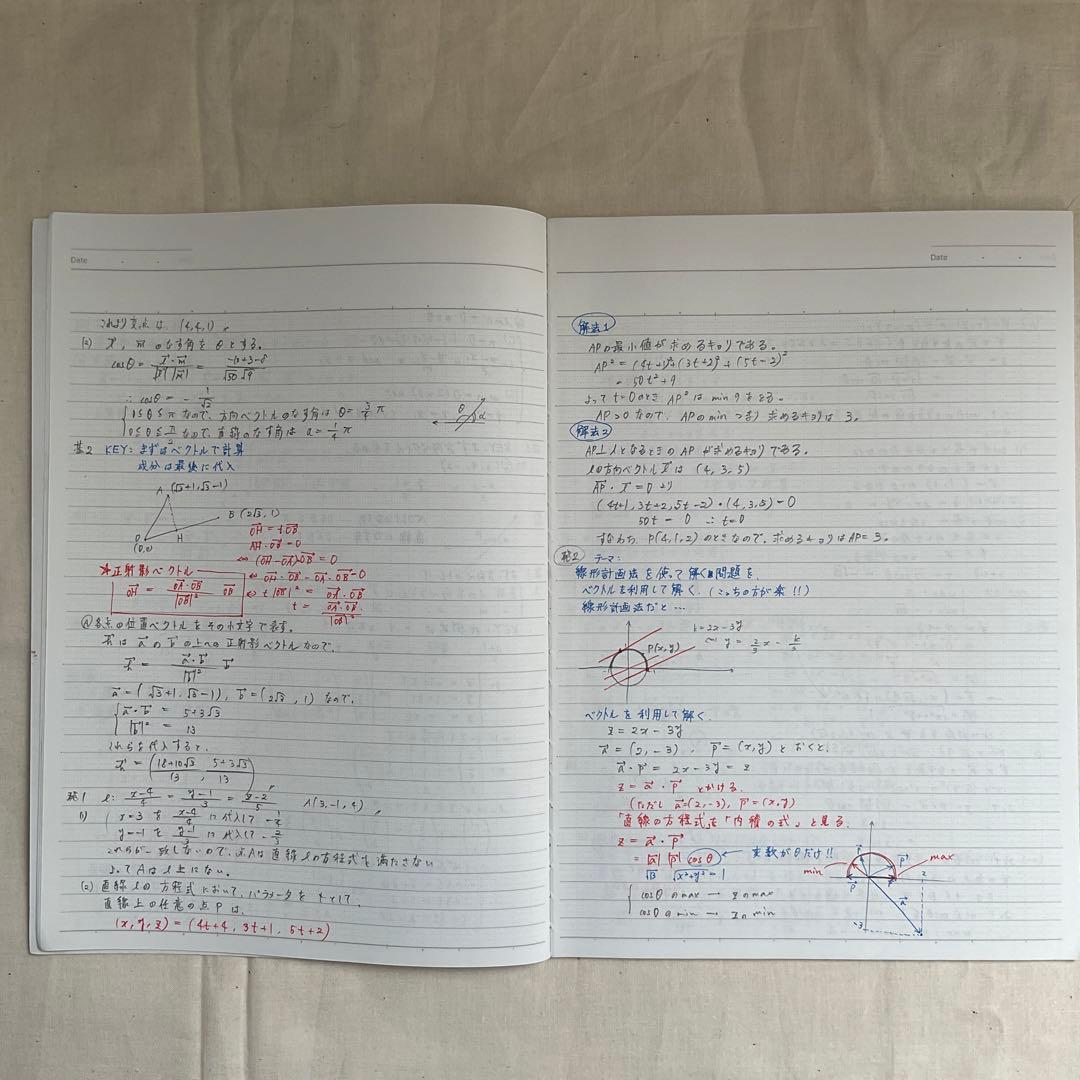 Date
これより交点は、(4,4,1)。
(2) l, m のなす角を θ とする。
cosθ = l・m / |l| |m| = -10+3-8 / √50 √9
∴ cosθ = - 1/√2
0≦θ≦π なので、方向ベクトルのなす角は θ = 3/4 π
0≦θ≦π/2 なので、直線のなす角は α = 1/4 π
θ
α
基2 KEY: まずはベクトルで計算
成分は最後に代入
A (√3+1, √3-1)
B (2√3, 1)
O
(0,0)
H
OH = tOB
AH・OB = 0
⇔ (OH - OA)・OB = 0
⇔ OH・OB - OA・OB = 0
⇔ t|OB|² = OA・OB
t = OA・OB / |OB|²
★正射影ベクトル
OH = OA・OB / |OB|² OB
各点の位置ベクトルをその小文字で表す。
h は a の b の上への正射影ベクトルなので、
h = a・b / |b|² b
a = (√3+1, √3-1), b = (2√3, 1) なので、
a・b = 5+3√3
|b|² = 13
これらを代入すると、
h = (18+10√3 / 13 , 5+3√3 / 13)
発1 l: x-4 / 4 = y-1 / 3 = z-2 / 5 A(3,-1,4)
(1) x=3 を x-4 / 4 に代入して - 1/4
y=-1 を y-1 / 3 に代入して - 2/3
これらが一致しないので、点Aは直線lの方程式を満たさない
よってAはl上にない。
(2) 直線lの方程式において、パラメータをtとして、
直線上の任意の点Pは、
(x, y, z) = (4t+4, 3t+1, 5t+2)
Date
解法1
APの最小値が求めるキョリである。
AP² = (4t+1)² + (3t+2)² + (5t-2)²
= 50t² + 9
よって t=0 のとき AP² は min 9 をとる。
AP>0 なので、APのmin つまり 求めるキョリは 3。
解法2
AP⊥l となるときの AP が求めるキョリである。
lの方向ベクトル l は (4, 3, 5)
AP・l = 0 より
(4t+1, 3t+2, 5t-2)・(4,3,5) = 0
50t = 0 ∴ t=0
すなわち、P(4,1,2) のときなので、求めるキョリは AP=3。
発2 テーマ:
線形計画法を使って解く問題を、
ベクトルを利用して解く。(こっちの方が楽!!)
線形計画法だと…
k=2x-3y
y = 2/3 x - k/3
P(x,y)
ベクトルを利用して解く
z = 2x - 3y
a = (2, -3) , p = (x, y) とおくと、
a・p = 2x - 3y = z
z = a・p とかける。
(ただし a=(2,-3), p=(x,y)
「直線の方程式」を「内積の式」と見る。
z = a・p
= |a| |p| cosθ ← 変数がθだけ!!
√13 √x²+y² = 1
cosθのmax → zのmax
cosθのmin → zのmin
min
max
p
p
p
p
a
2
-3